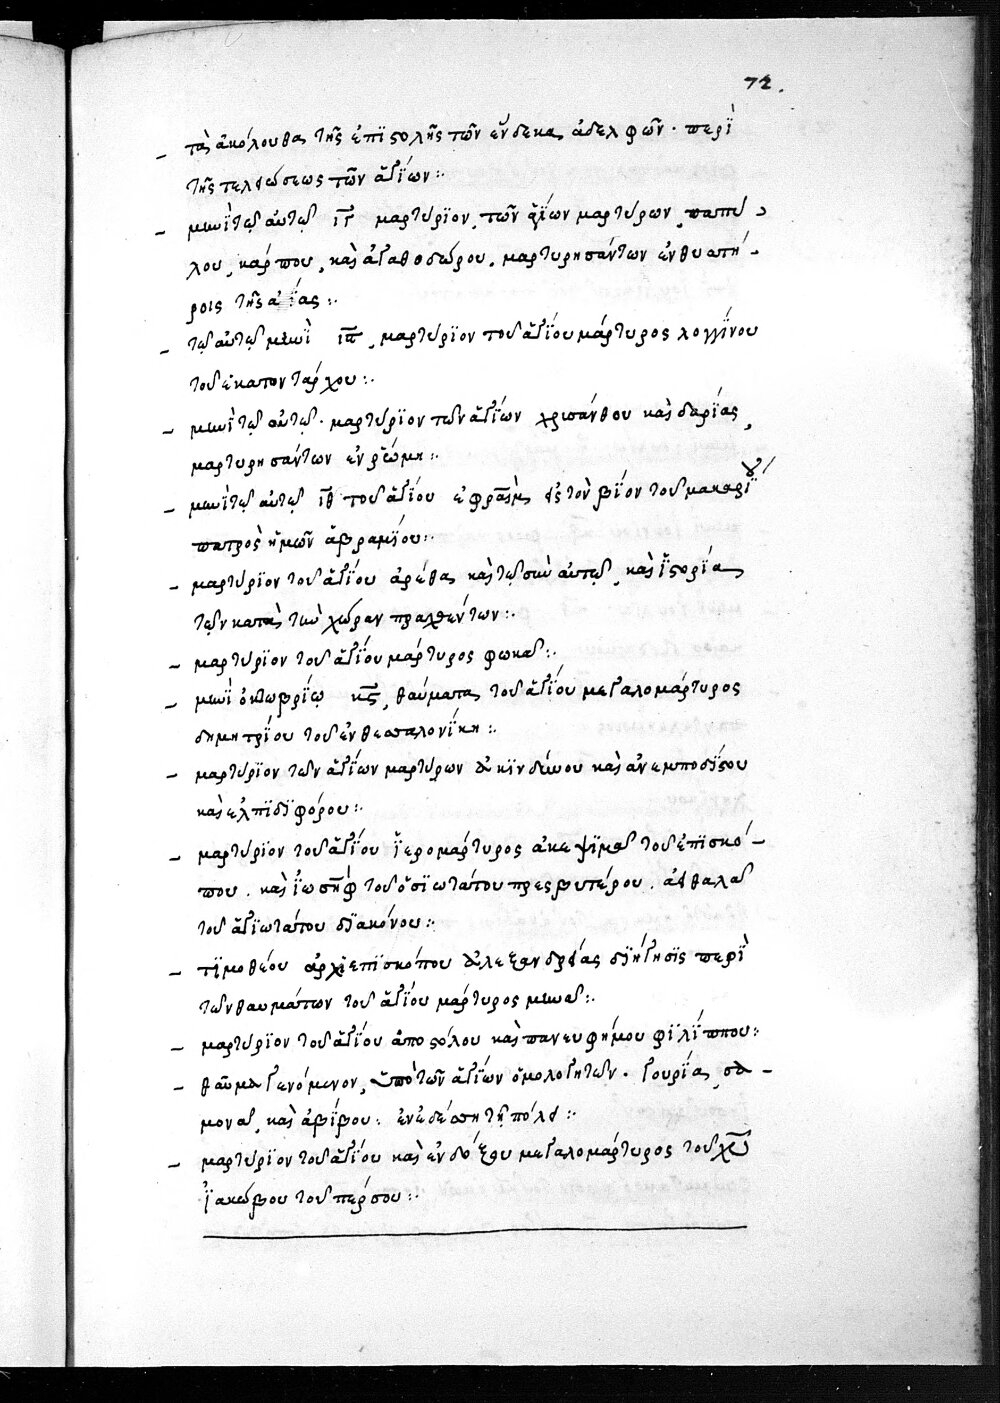 72.
– τὰ ἀκόλουθα τῆς ἐπιστολῆς τῶν ἕνδεκα ἀδελφῶν. περὶ
τῆς τελειώσεως τῶν ἁγΐων:.
– μηνὶ τῷ αὐτῷ ιγ μαρτύρϊον, τῶν ἁγΐων μαρτύρων, παπύ
λου, κάρπου, καὶ ἀγαθοδώρου. μαρτυρησάντων ἐν θυατή–
ροις τῆς ἀσΐας:.
– τῷ αὐτῷ μηνὶ ιϛ, μαρτύρϊον τοῦ ἁγΐου μάρτυρος λογγΐνου
τοῦ ἑκατοντάρχου:.
– μηνὶ τῷ αὐτῷ. μαρτύρϊον τῶν ἁγΐων χρισάνθου καὶ δαρίας,
μαρτυρησάντων ἐν ῥώμη:.
– μηνὶ τῷ αὐτῷ ιθ τοῦ ἁγΐου ἐφραῒμ εἰς τὸν βΐον τοῦ μακαρΐου
πατρὸς ἡμῶν ἀβραμΐου:.
– μαρτύρϊον τοῦ ἁγΐου ἀρέθα καὶ τῶν σὺν αὐτῷ, καὶ ἱστορία
τῶν κατὰ τὴν χώραν πραχθέντων:.
– μαρτύρϊον τοῦ ἁγΐου μάρτυρος φωκᾶ:.
– μηνὶ ὀκτωβρίῳ κϛ, θαύματα τοῦ ἁγΐου μεγαλομάρτυρος
δημητρΐου τοῦ ἐν θεσσαλονΐκη:.
– μαρτύρϊον τῶν ἁγΐων μαρτύρων ἀκϊνδύνου καὶ ἀνεμποδΐστου
καὶ ἐλπϊδϊφόρου:.
– μαρτύρϊον τοῦ ἁγΐου ἱερομάρτυρος ἀκεψϊμᾶ τοῦ ἐπϊσκό–
που. καὶ ἰωσὴφ τοῦ ὁσϊωτάτου πρεσβυτέρου. ἀειθαλᾶ
τοῦ ἁγϊωτάτου δϊακόνου:.
– τϊμοθέου ἀρχϊεπϊσκόπου ἀλεξανδρείας δϊήγησϊς περὶ
τῶν θαυμάτων τοῦ ἁγΐου μάρτυρος μηνᾶ:.
– μαρτύρϊον τοῦ ἁγΐου ἀποστόλου καὶ πανευφήμου φϊλΐππου:
– θαῦμα γενόμενον, ὑπὸ τῶν ἁγΐων ὁμολογητῶν. γουρία, σα–
μονᾶ, καὶ ἀβΐβου. ἐν ἐδέσση τῇ πόλει:.
– μαρτύρϊον τοῦ ἁγΐου καὶ ἐνδόξου μεγαλομάρτυρος τοῦ χυ
ἰακώβου τοῦ πέρσου:.